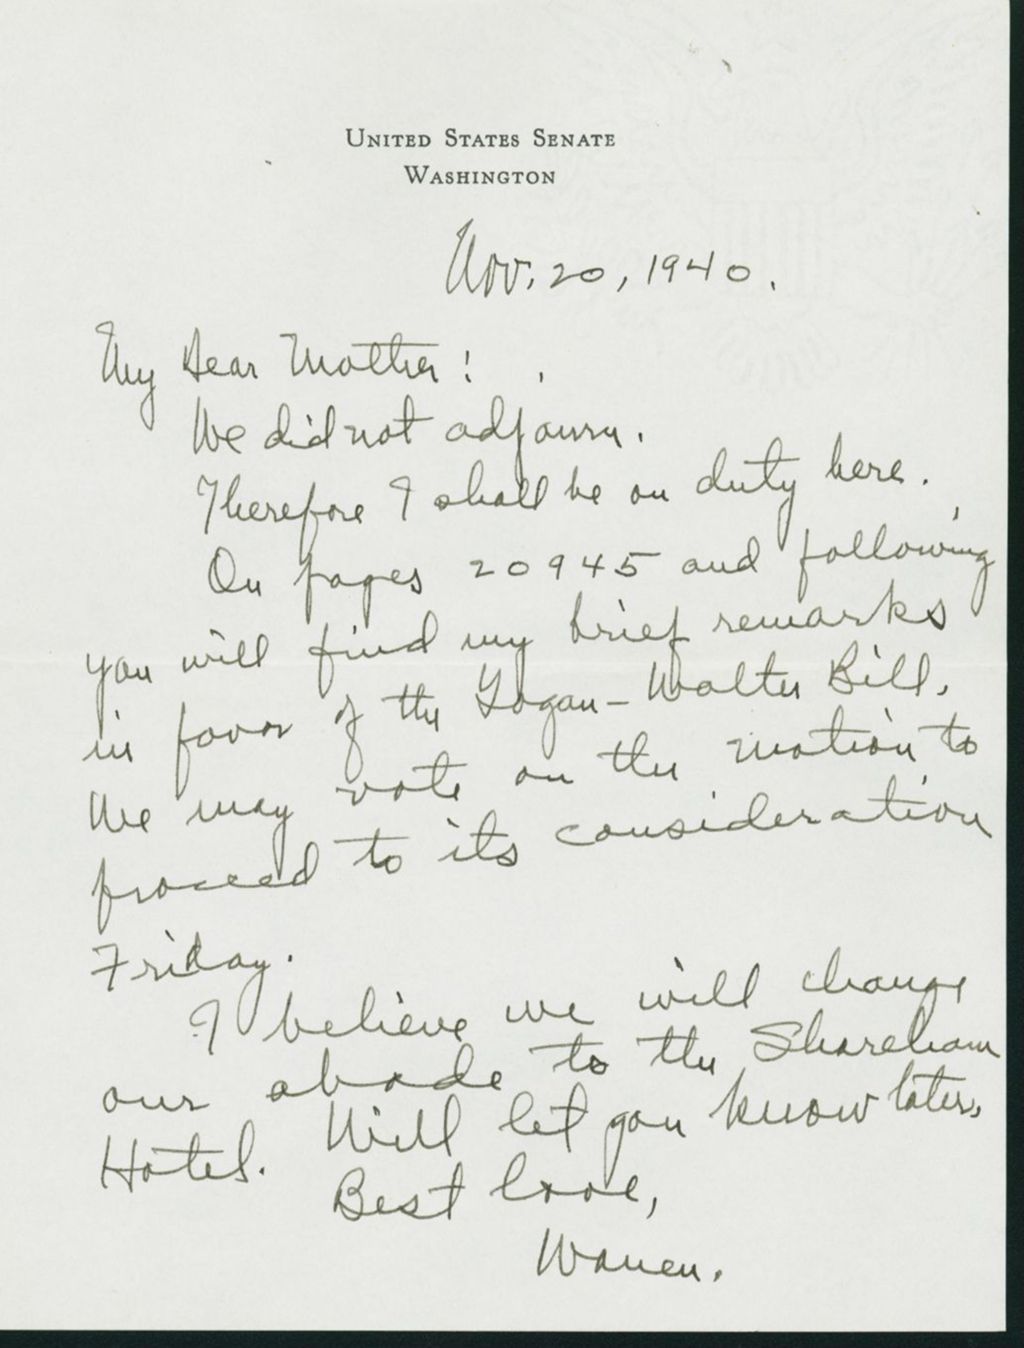 UNITED STATES SENATE
WASHINGTON
Nov. 20, 1940.
My Dear Mother!
We did not adjourn.
Therefore I shall be on duty here.
On pages 20945 and following
you will find my brief remarks
in favor of the Logan-Walter Bill.
We may vote on the motion to
proceed to its consideration
Friday.
I believe we will change
our abode to the Shoreham
Hotel. Will let you know later.
Best love,
Warren.